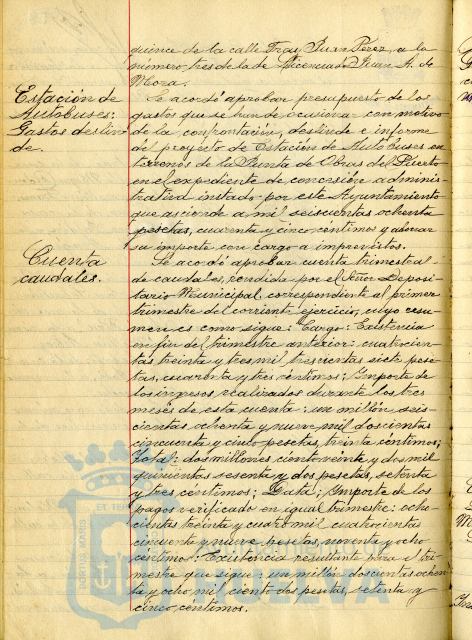 quince de la calle Fray Juan Pérez, a la
número tres de la de Licenciado Juan A. de
Mora.
Estación de
Autobuses:
Gastos deslin
de.
Se acordó aprobar presupuesto de los
gastos que se han de ocasionar con motivo
de la confrontación, deslinde e informe
del proyecto de Estación de Autobuses en
terrenos de la Junta de Obras del Puerto
en el expediente de concesión adminis-
trativa instado por este Ayuntamiento
que asciende a mil seiscientas ochenta
pesetas, cuarenta y cinco céntimos y abonar
su importe con cargo a imprevistos.
Cuenta
caudales.
Se acordó aprobar cuenta trimestral
de caudales, rendida por el Señor Deposi-
tario Municipal, correspondiente al primer
trimestre del corriente ejercicio, cuyo resu-
men es como sigue: Cargo: Existencia
en fin del trimestre anterior: cuatrocien-
tas treinta y tres mil trescientas siete pese-
tas, cuarenta y tres céntimos; Importe de
los ingresos realizados durante los tres
meses de esta cuenta: un millón seis-
cientas ochenta y nueve mil doscientas
cincuenta y cinco pesetas, treinta céntimos;
Total: dos millones ciento veinte y dos mil
quinientas sesenta y dos pesetas, setenta
y tres céntimos; Data; Importe de los
pagos verificado en igual trimestre: ocho-
cientas treinta y cuatro mil cuatrocientas
cincuenta y nueve pesetas, noventa y ocho
céntimos: Existencia resultante para el tri-
mestre que sigue: un millón doscientas ochen-
ta y ocho mil ciento dos pesetas, setenta y
cinco céntimos.
PORTUS MARIS
ET TERRÆ
HUELVA